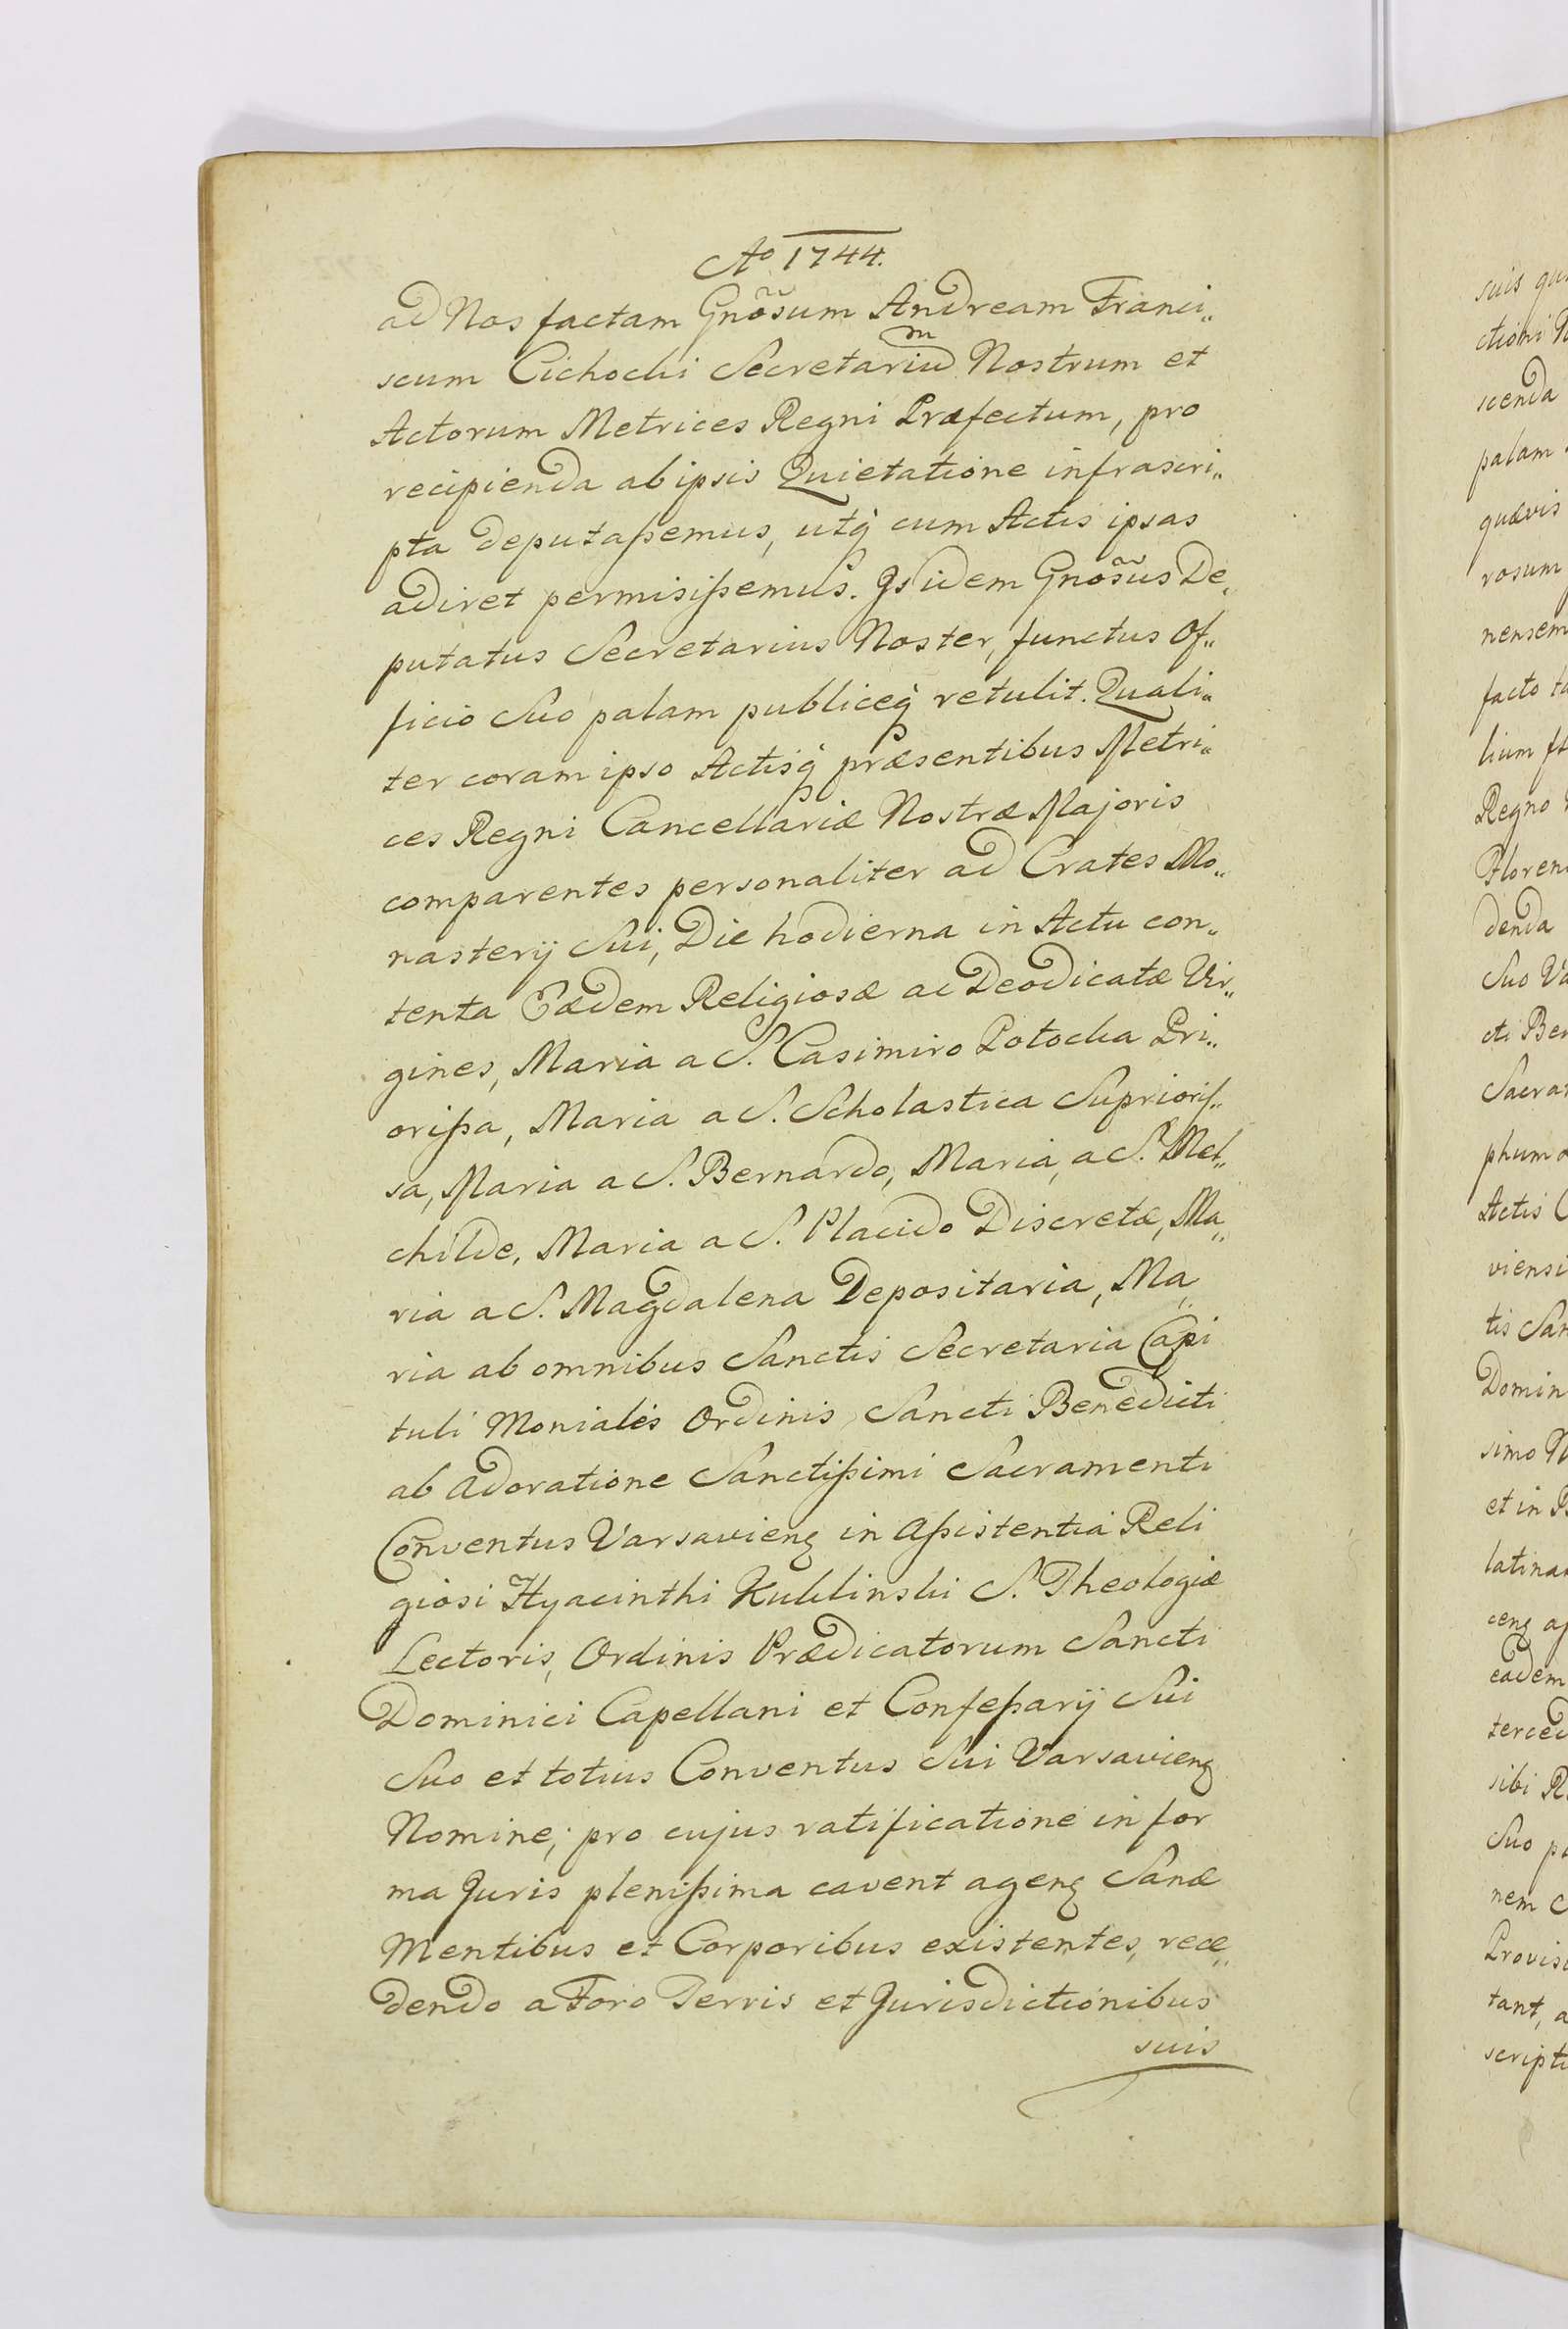 Ao 1744.
ad Nos factam Gnõsum Andream Franci„
scum Cichocki Secretarium Nostrum et
Actorum Metrices Regni Præfectum, pro
recipienda ab ipsis Quietatione infrascri„
pta deputaßemus, utq̀ cum Actis ipsas
adiret permisißemus. Is idem Gnõsus De„
putatus Secretarius Noster, functus Of„
ficio Suo palam publiceq̀ retulit. Quali„
ter coram ipso Actisq̀ præsentibus Metri„
ces Regni Cancellariæ Nostræ Majoris
comparentes personaliter ad Crates Mo„
nasterij Sui, Die hodierna in Actu con„
tenta Eædem Religiosæ ac Deodicatæ Vir„
gines, Maria a S. Casimiro Potocka Pri„
orißa, Maria a S. Scholastica Supprioris„
sa, Maria a S. Bernardo, Maria, a S. Mel„
childe, Maria a S. Placido Discretæ, Ma„
ria a S. Magdalena Depositaria, Ma„
ria ab omnibus Sanctis Secretaria Capi
tuli Moniales Ordinis Sancti Benedicti
ab Adoratione Sanctißimi Sacramenti
Conventus Varsavieng in Aßistentia Reli
giosi Hyacinthi Kuklinski S. Theologiæ
Lectoris, Ordinis Prædicatorum Sancti
Dominici Capellani et Confeßarij Sui
Suo et totius Conventus Sui Varsavieng
Nomine; pro cujus ratificatione in for
ma Juris plenißima cavent ageng Sanæ
Mentibus et Corporibus existentes, rece„
dendo a Foro Terris et Jurisdictionibus
suis
suis
ctioni
scenda
palam
quævis
rosum
nensem
facto
lium
Regno
denda
Suo
cti Ber
phum
Actis
viensi
tis San
Domin
simo
et in
eadem
sibi
Suo
nem
tant, a
scripti